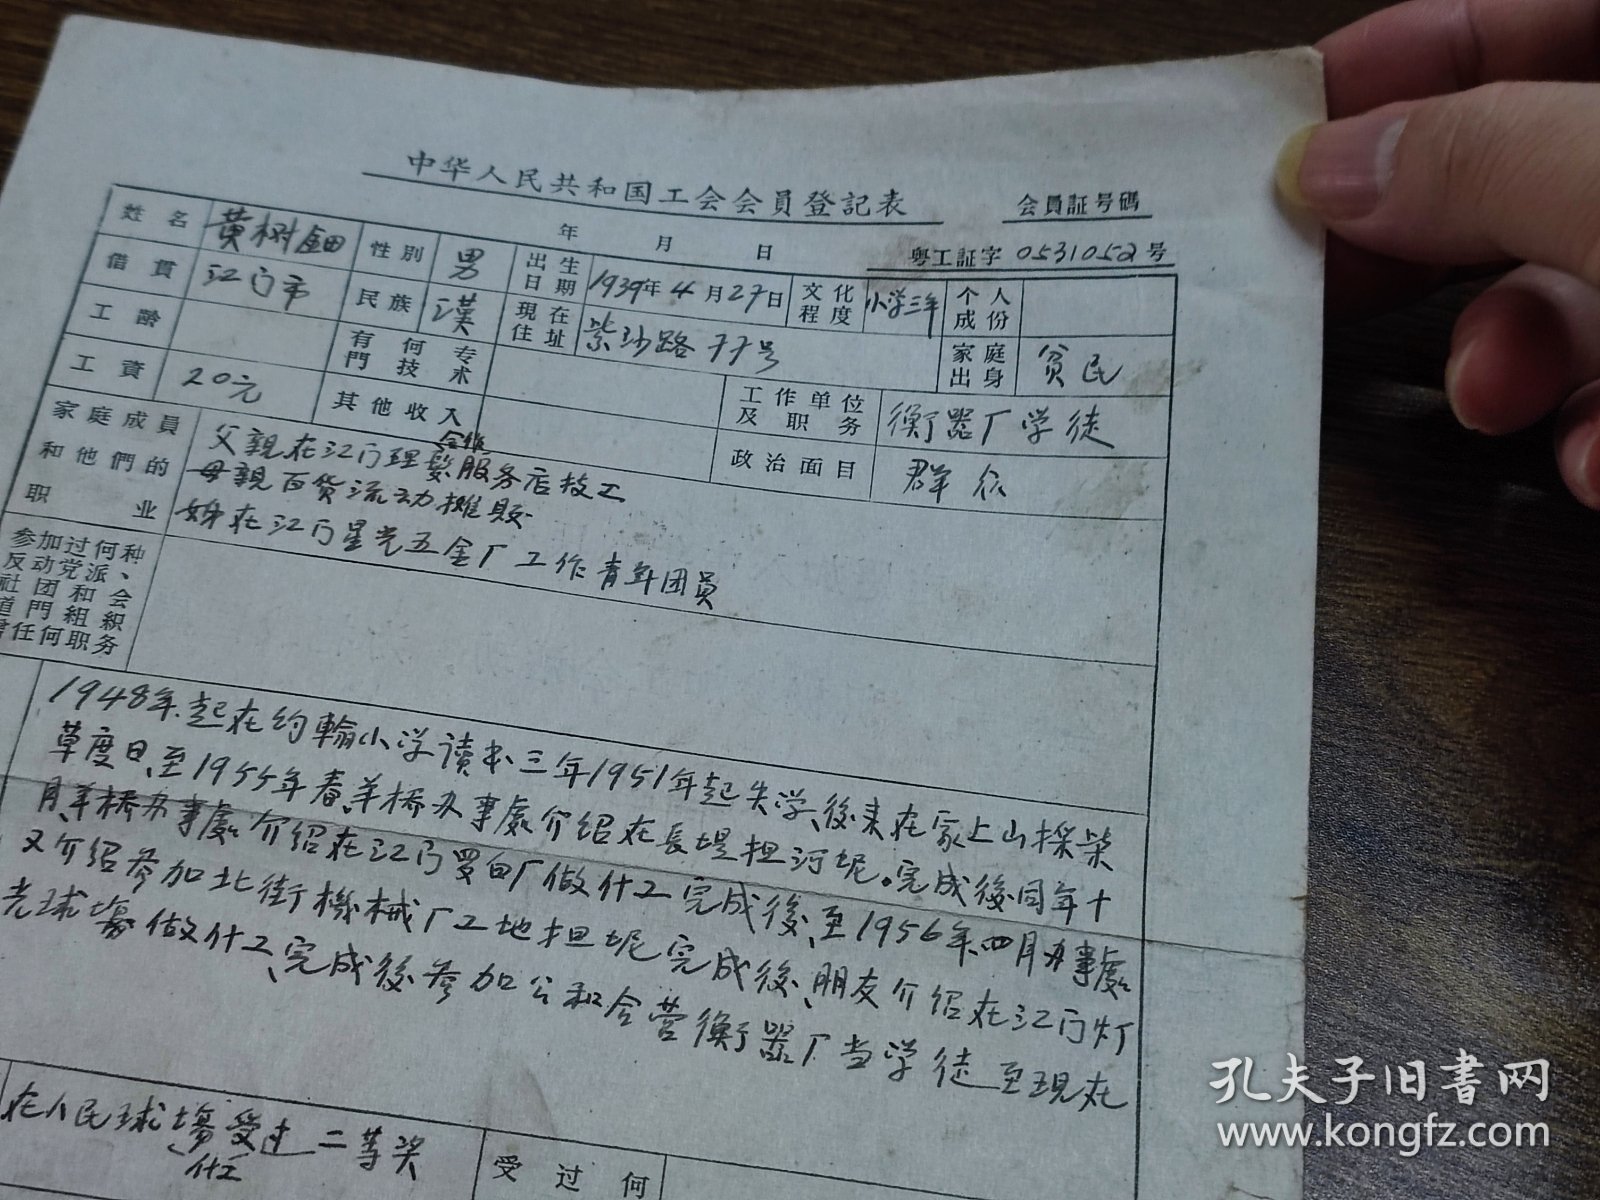 中华人民共和国工会会員登記表
会員証号碼
年 月 日
粤工証字 0531052 号
姓名 黄树鈿 性別 男 出生日期 1939年4月27日 文化程度 小学三年 个人成份
借貫 江门市 民族 漢 現在住址 紫沙路77号 家庭出身 貧民
工齡 有何专門技术 工作单位及职务 衡器厂学徒
工資 20元 其他收入 政治面目 群众
家庭成員和他們的职业
父親在江门理髪服务店技工
合作
母親百货流动摊贩
姊在江门星光五金厂工作青年团員
参加过何种
反动党派、
社团和会
道門組织
任何职务
1948年.起在约翰小学读书三年1951年起失学,後来在家上山採柴
草度日、至1955年春羊桥办事處介绍在長堤担河坭。完成後同年十
月羊桥办事處介绍在江门罗白厂做什工完成後、至1956年四月办事處
又介绍参加北街機械厂工地担坭完成後、朋友介绍在江门灯
光球場做什工、完成後参加公私合营衡器厂当学徒至現在
在人民球場受过二等奖
什工
受过何
孔夫子旧書网
www.kongfz.com